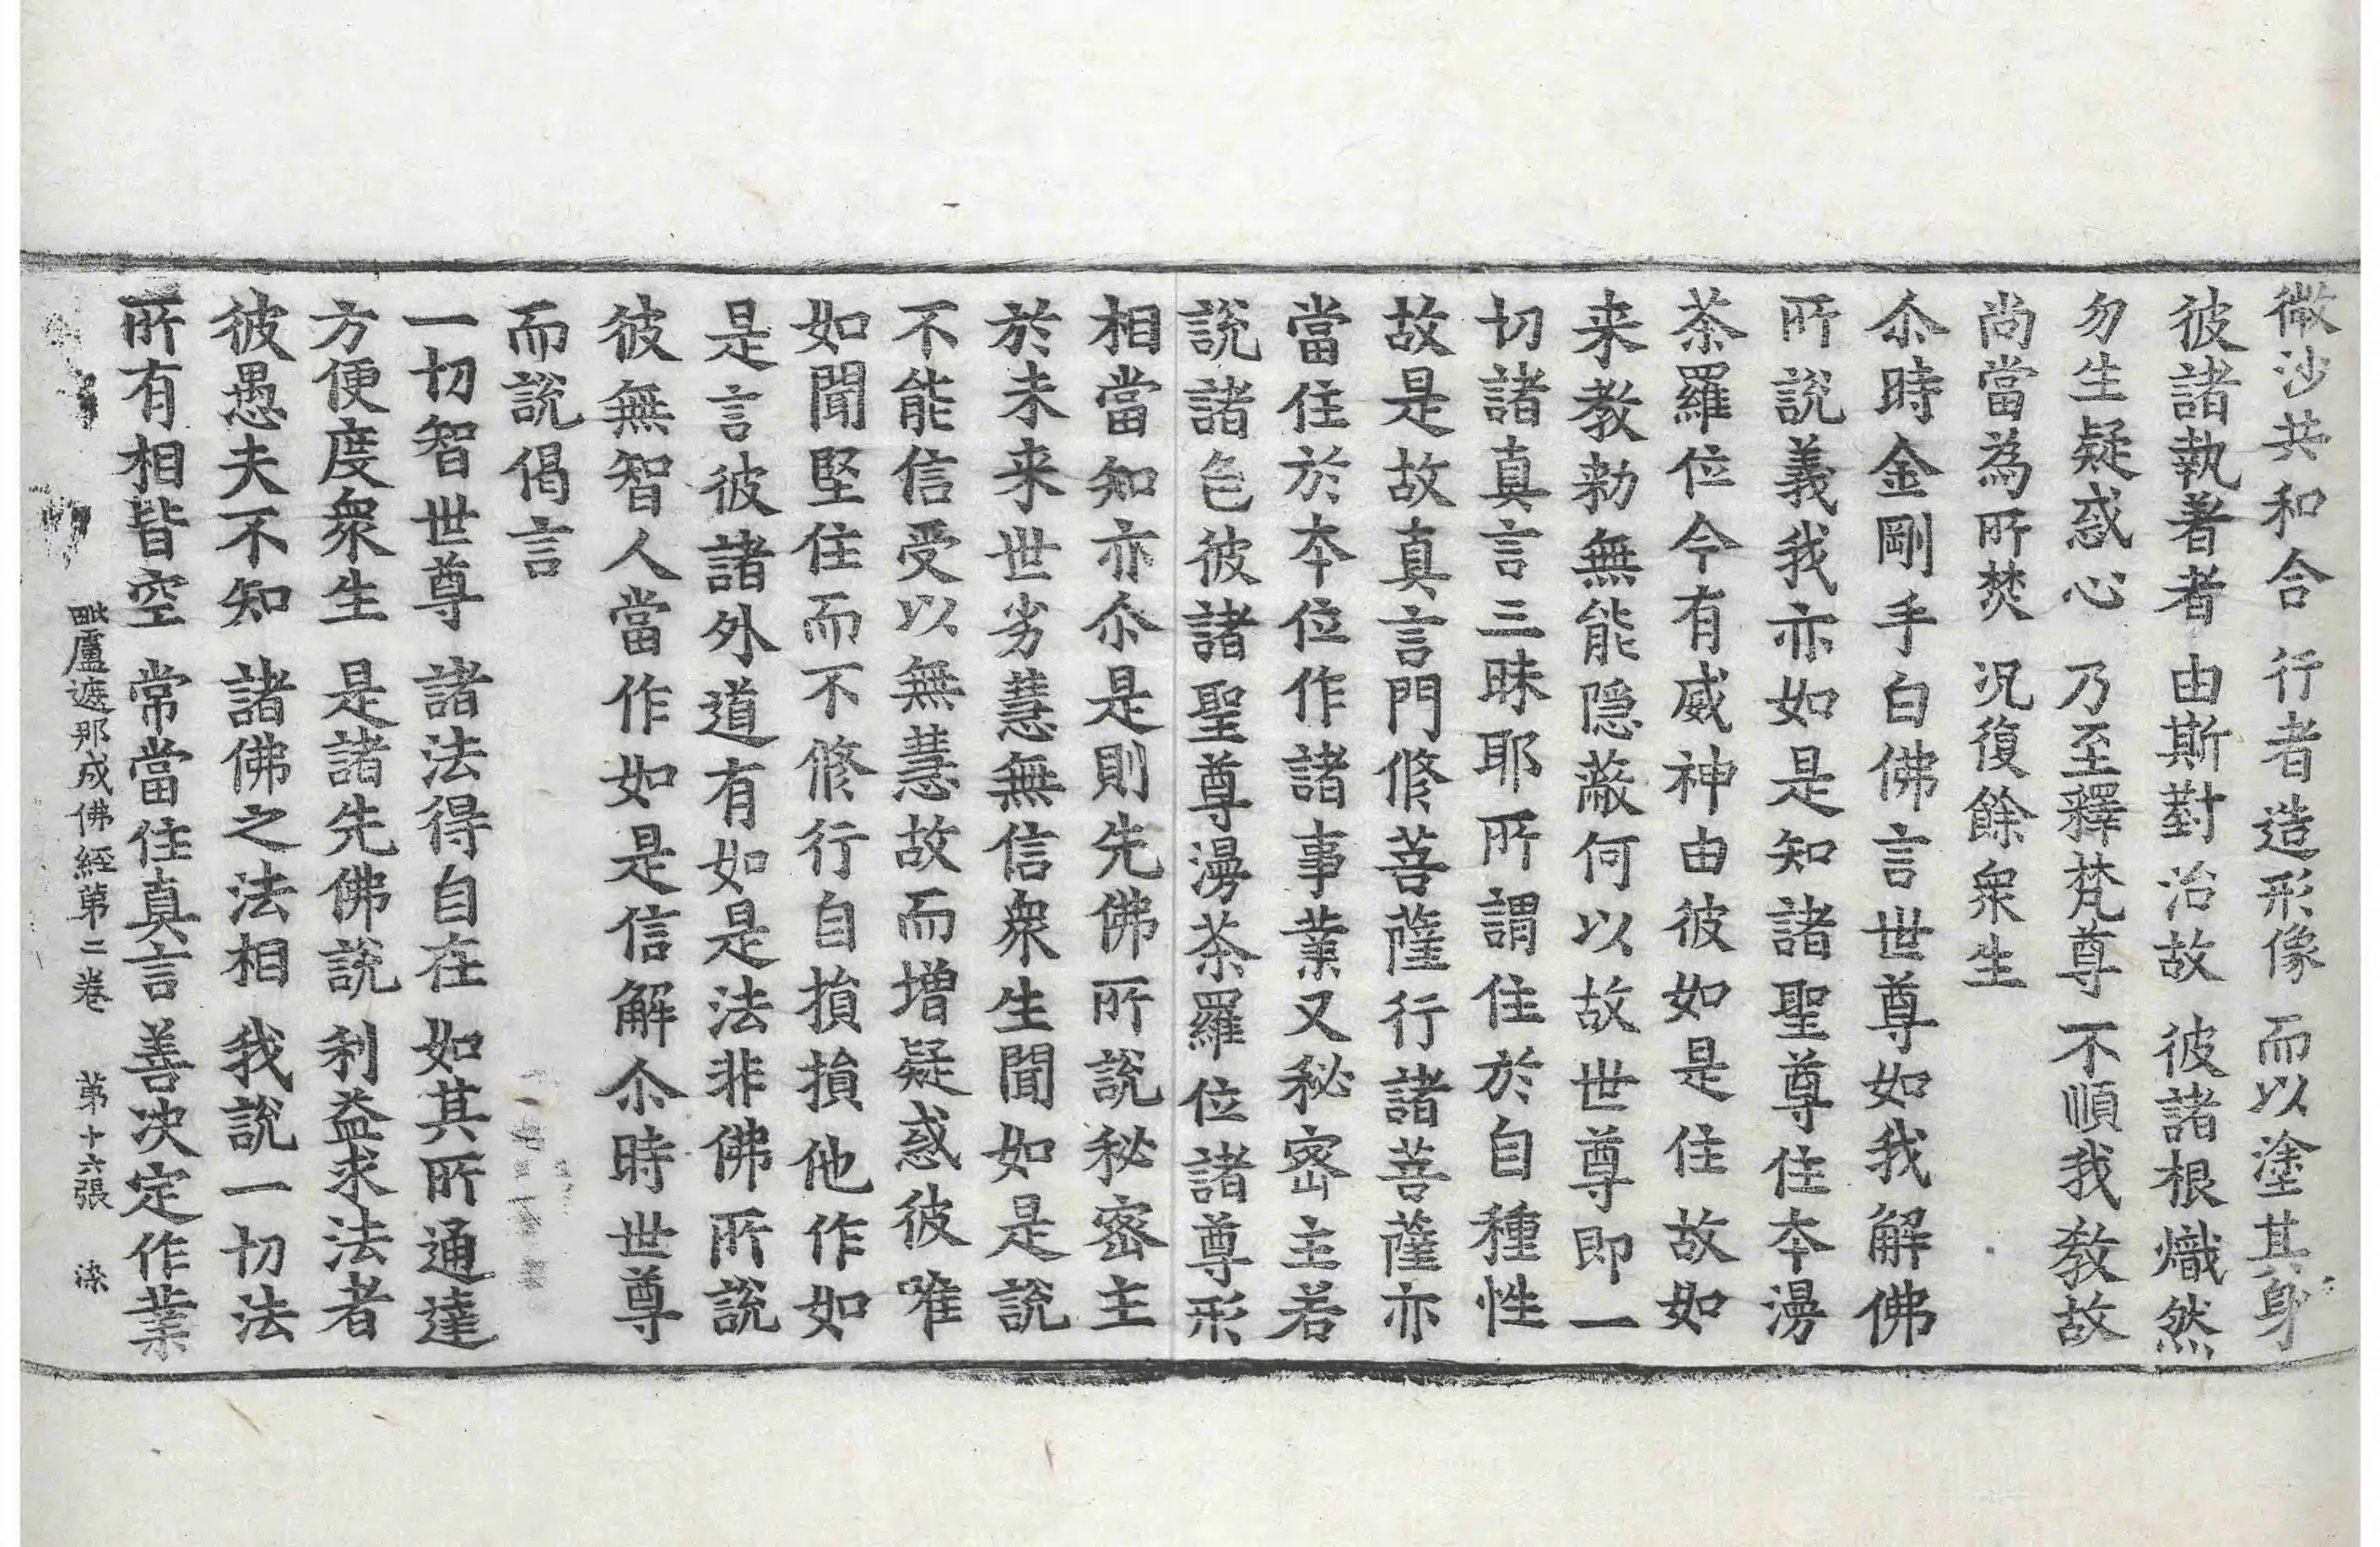 微沙共和合 行者造形像 而以塗其身
彼諸執著者 由斯對治故 彼諸根熾然
勿生疑惑心 乃至釋梵尊 不順我教故
尚當為所焚 况復餘衆生
尒時金剛手白佛言世尊如我解佛
所說義我亦如是知諸聖尊住本漫
茶羅位今有威神由彼如是住故如
来教勑無能隱蔽何以故世尊即一
切諸真言三昧耶所謂住於自種性
故是故真言門修菩薩行諸菩薩亦
當住於本位作諸事業又秘密主若
說諸色彼諸聖尊漫茶羅位諸尊形
相當知亦尒是則先佛所說秘密主
於未来世劣慧無信衆生聞如是說
不能信受以無慧故而增疑惑彼唯
如聞堅住而不修行自損損他作如
是言彼諸外道有如是法非佛所說
彼無智人當作如是信解尒時世尊
而說偈言
一切智世尊 諸法得自在 如其所通達
方便度衆生 是諸先佛說 利益求法者
彼愚夫不知 諸佛之法相 我說一切法
所有相皆空 常當住真言 善决定作業
毗盧遮那成佛経苐二卷 苐十六張 染